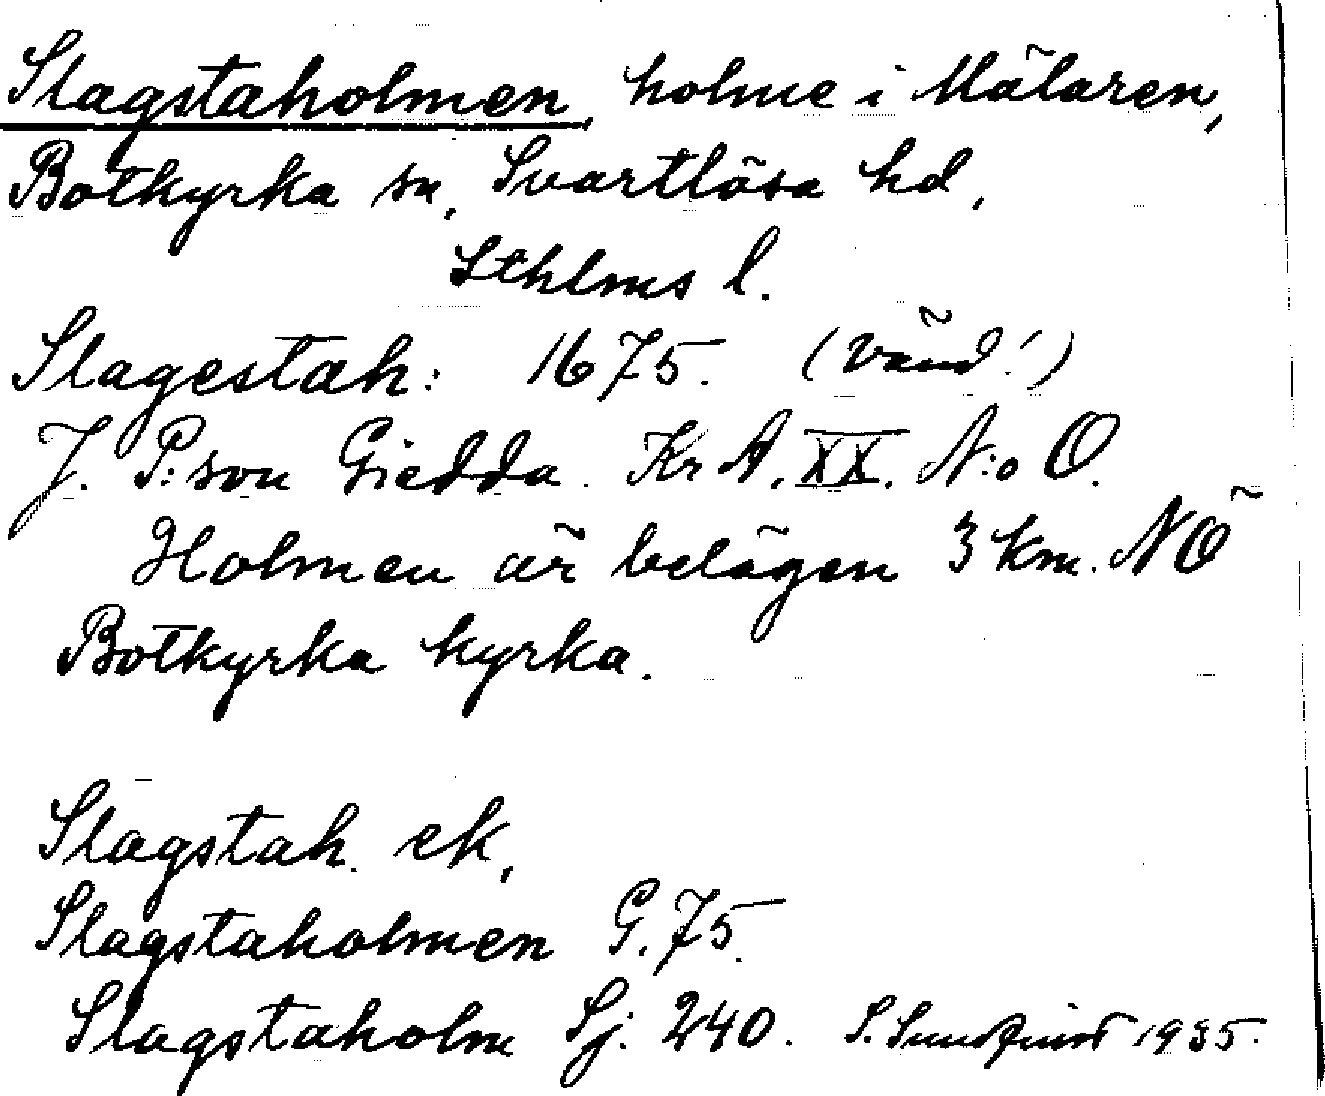 Slagstaholmen, holme i Mälaren,
Botkyrka sn, Svartlösa hd,
Sthlms l.
Slagestah: 1675. (vänd!)
J. P:son Giedda. Kr A. XX. N:o O.
Holmen är belägen 3 km. NÖ
Botkyrka kyrka.
Slagstah. ek,
Slagstaholmen G. 75.
Slagstaholm Sj. 240. S. Sundquist 1935.